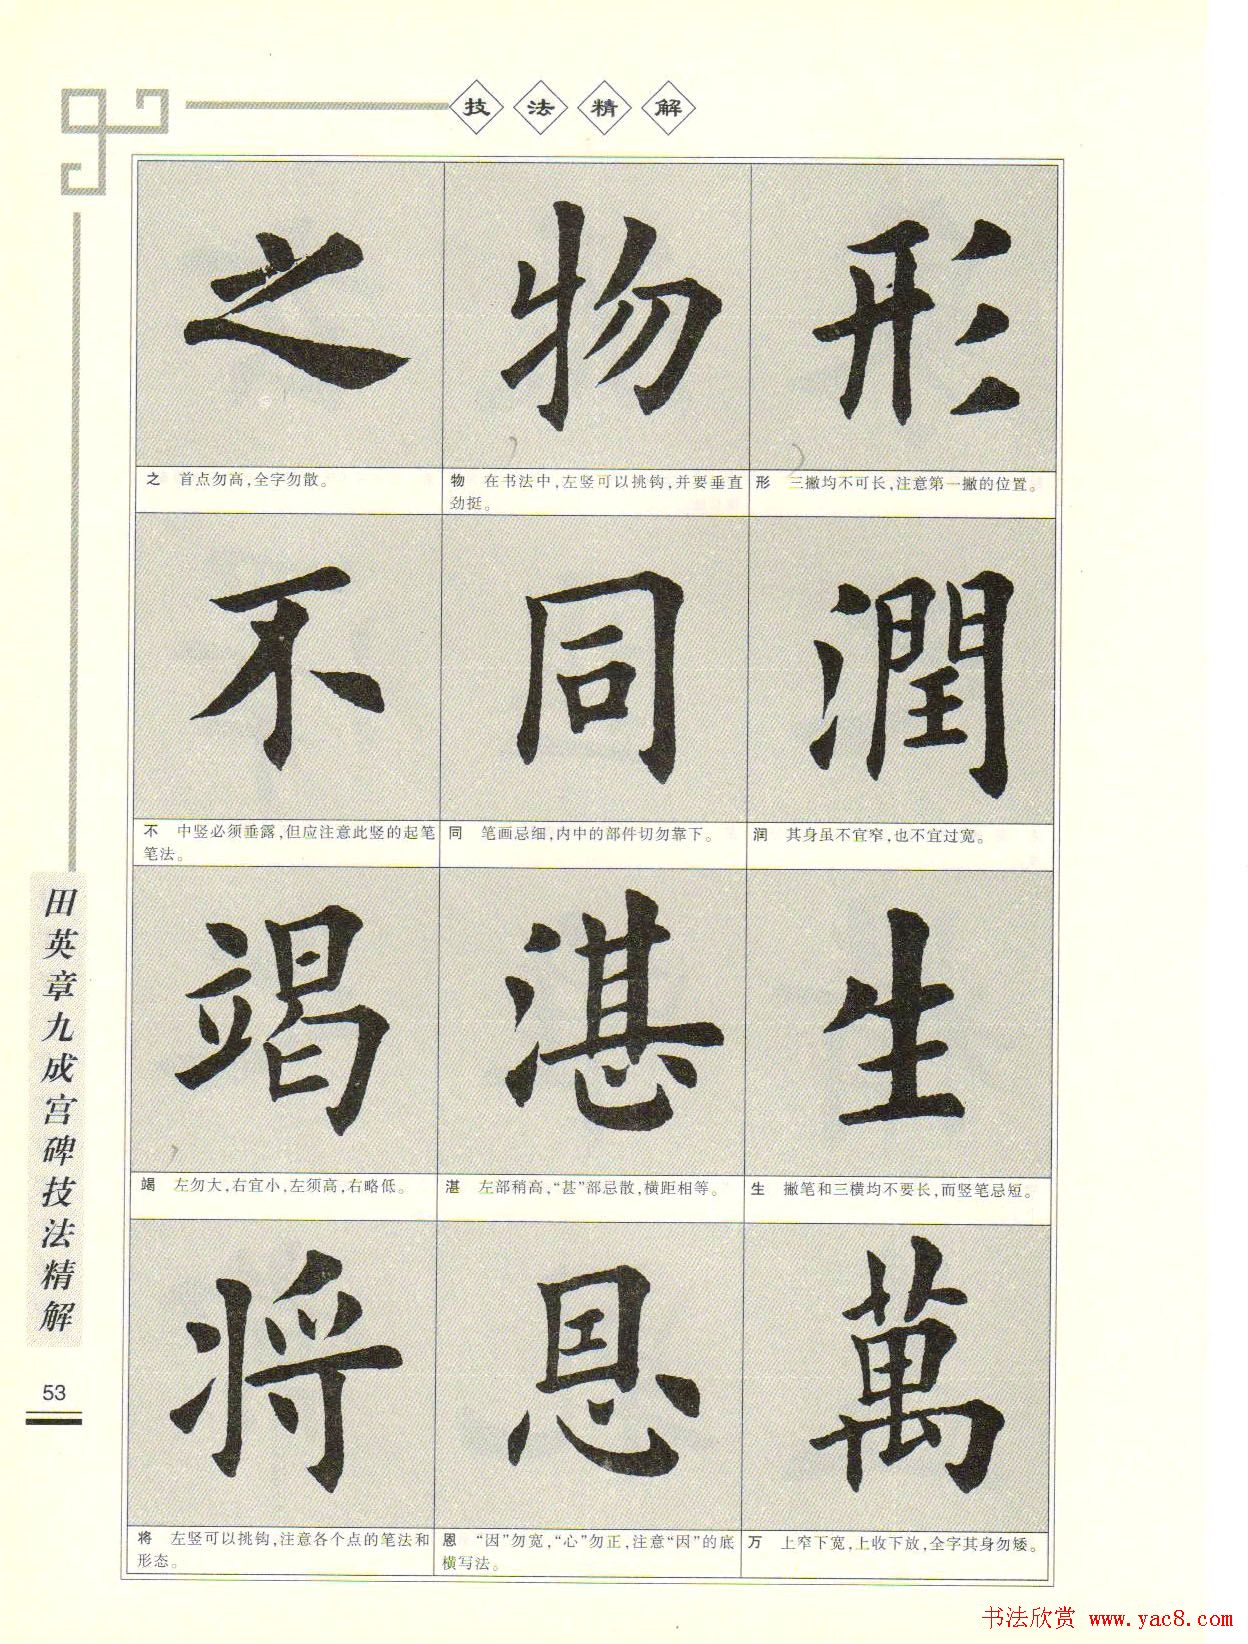 技法精解
之 物 形
之 首点勿高,全字勿散。
物 在书法中,左竖可以挑钩,并要垂直
劲挺。
形 三撇均不可长,注意第一撇的位置。
不 同 潤
不 中竖必须垂露,但应注意此竖的起笔
笔法。
同 笔画忌细,内中的部件切勿靠下。
润 其身虽不宜窄,也不宜过宽。
竭 湛 生
竭 左勿大,右宜小,左须高,右略低。
湛 左部稍高,“甚”部忌散,横距相等。
生 撇笔和三横均不要长,而竖笔忌短。
将 恩 萬
将 左竖可以挑钩,注意各个点的笔法和
形态。
恩 “因”勿宽,“心”勿正,注意“因”的底
横写法。
万 上窄下宽,上收下放,全字其身勿矮。
田英章九成宫碑技法精解
53
书法欣赏 www.yac8.com